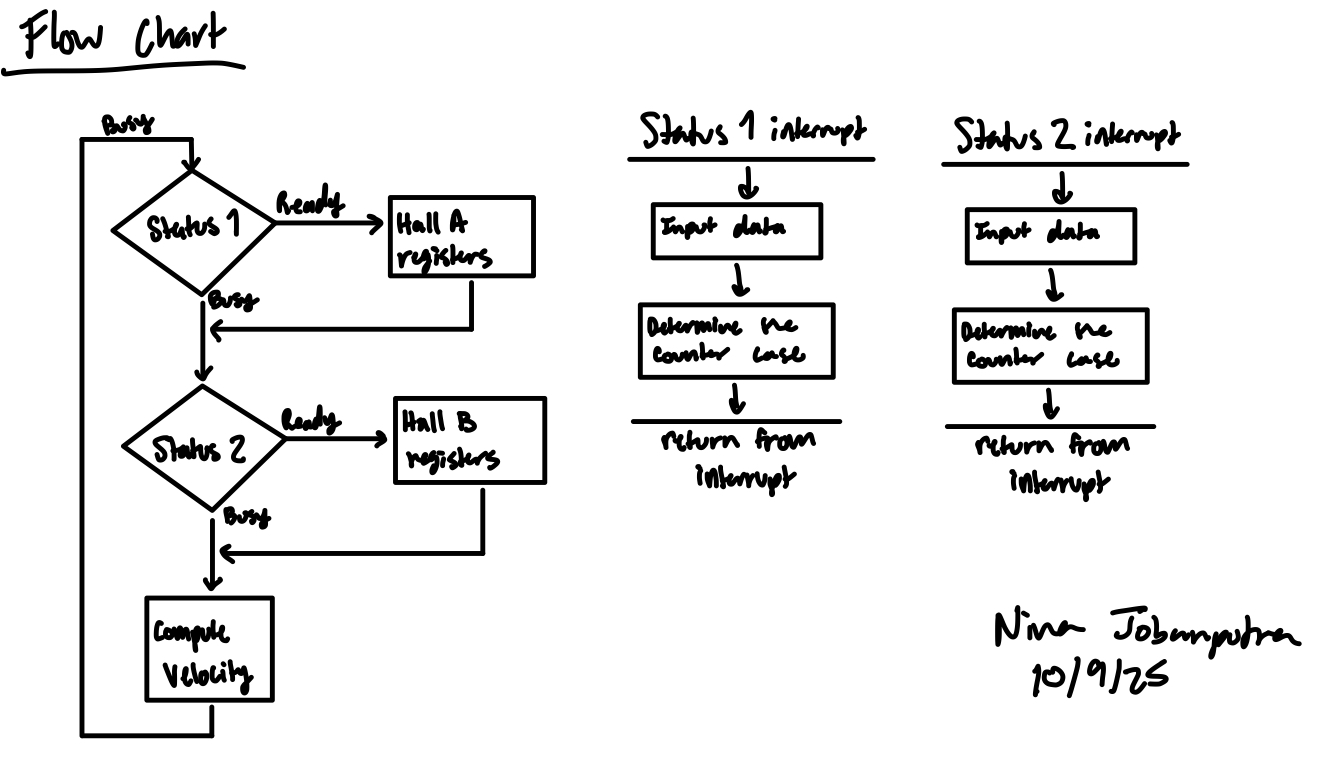 Flow Chart
Busy
Status 1
Ready
Hall A
registers
Busy
Status 2
Ready
Hall B
registers
Busy
Compute
Velocity
Status 1 interrupt
Input data
Determine the
counter case
return from
interrupt
Status 2 interrupt
Input data
Determine the
counter case
return from
interrupt
Nina Jobanputra
10/9/25